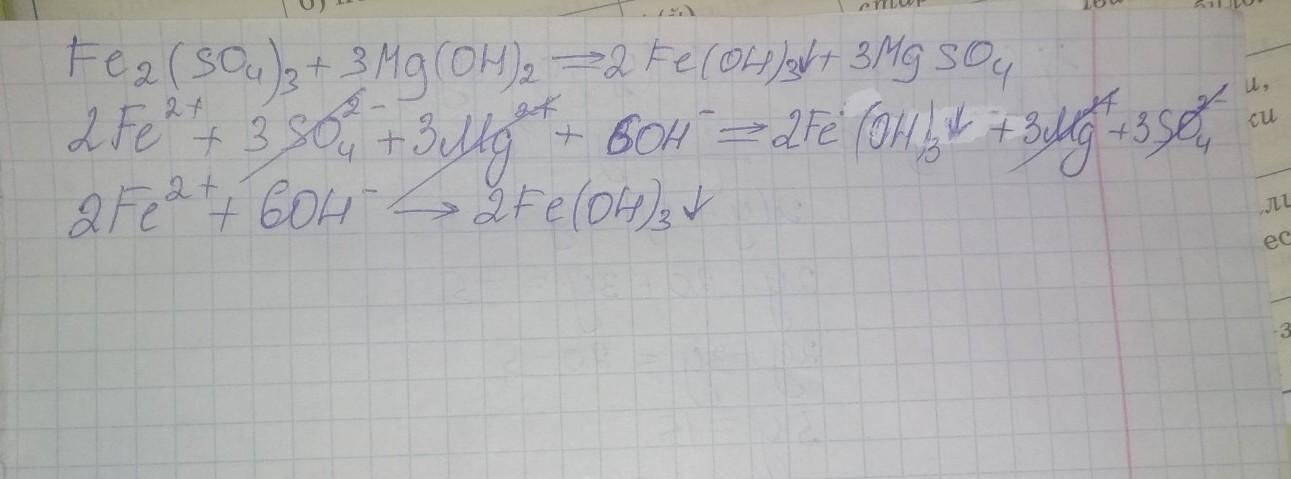 Fe₂(SO₄)₃ + 3Mg(OH)₂ ⇒ 2Fe(OH)₃↓ + 3MgSO₄
2Fe²⁺ + 3SO₄²⁻ + 3Mg²⁺ + 6OH⁻ ⇒ 2Fe(OH)₃↓ + 3Mg²⁺ + 3SO₄²⁻
2Fe²⁺ + 6OH⁻ → 2Fe(OH)₃↓